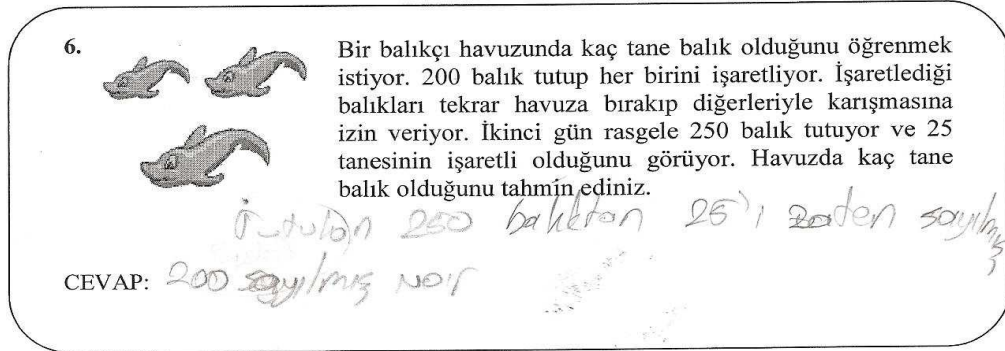 6.
Bir balıkçı havuzunda kaç tane balık olduğunu öğrenmek
istiyor. 200 balık tutup her birini işaretliyor. İşaretlediği
balıkları tekrar havuza bırakıp diğerleriyle karışmasına
izin veriyor. İkinci gün rasgele 250 balık tutuyor ve 25
tanesinin işaretli olduğunu görüyor. Havuzda kaç tane
balık olduğunu tahmin ediniz.
Tutulan 250 balıktan 25'i zaten sayılmış
CEVAP: 200 sayılmış